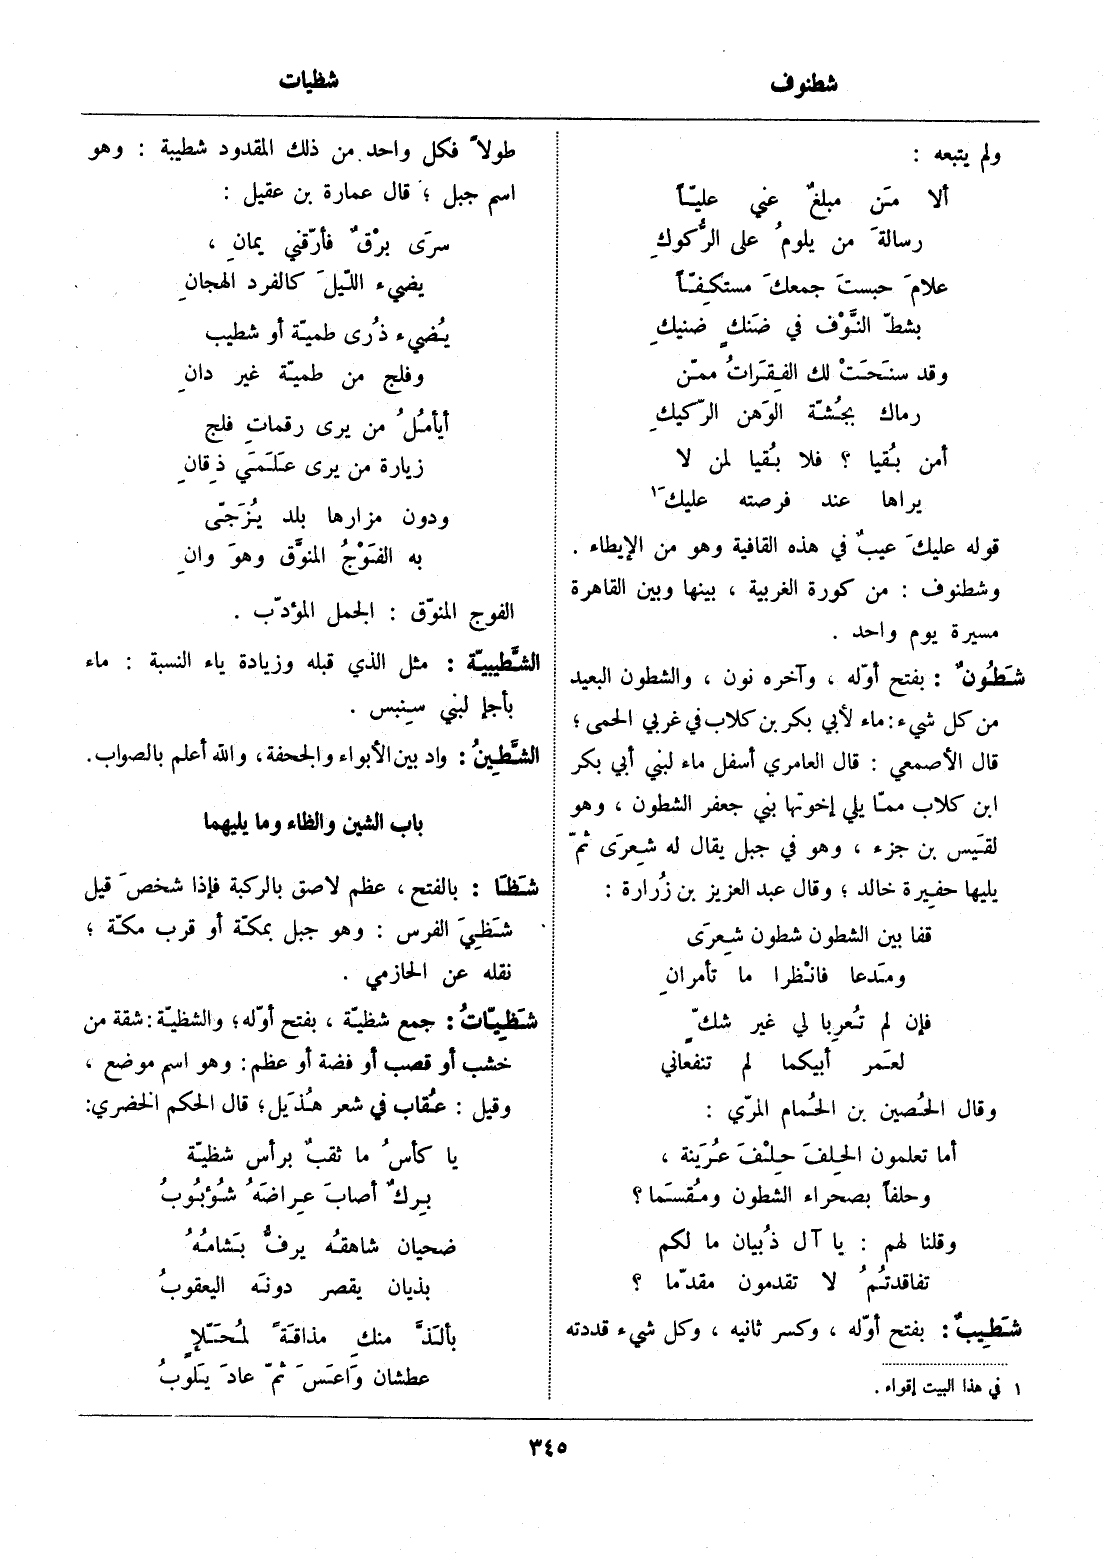 شطنوف
شظيات
ولم يتبعه :
ألا مَن مبلغٌ عني عليّاً
رسالةَ من يلومُ على الرُّكوكِ
علامَ حبستَ جمعكَ مستكِفّاً
بشطّ النَّوْف في ضَنكٍ ضنيكِ
وقد سنَحَتْ لك الفِقَراتُ ممّن
رماك بجُشّة الوَهن الرّكيكِ
أمن بُقيا ؟ فلا بُقيا لمن لا
يراها عند فرصته عليكَ١
قوله عليكَ عيبٌ في هذه القافية وهو من الإيطاء .
وشطنوف : من كورة الغربية ، بينها وبين القاهرة
مسيرة يوم واحد .
شَطُونٌ : بفتح أوّله ، وآخره نون ، والشطون البعيد
من كل شيء : ماء لأبي بكر بن كلاب في غربي الحمى ؛
قال الأصمعي : قال العامري أسفل ماء لبني أبي بكر
ابن كلاب ممّا يلي إخوتها بني جعفر الشطون ، وهو
لقَيس بن جزء ، وهو في جبل يقال له شِعرَى ثمّ
يليها حفِيرة خالد ؛ وقال عبد العزيز بن زُرارة :
قفا بين الشطون شطون شِعرَى
ومَدعا فانْظرا ما تأمرانِ
فإن لم تُعرِبا لي غير شكٍّ
لعَمر أبيكما لم تنفعاني
وقال الحُصين بن الحُمام المرّي :
أما تعلمون الحِلفَ حِلْفَ عُرَينة ،
وحلفاً بصحراء الشطون ومُقسَما ؟
وقلنا لهم : يا آل ذُبيان ما لكم
تفاقدتُمُ لا تقدمون مقدّما ؟
شَطِيبٌ : بفتح أوّله ، وكسر ثانيه ، وكل شيء قددته
١ في هذا البيت إقواء .
طولاً فكل واحد من ذلك المقدود شطيبة : وهو
اسم جبل ؛ قال عمارة بن عقيل :
سرَى برْقٌ فأرّقني يمانِ ،
يضيء اللّيلَ كالفرد الهجانِ
يُضيء ذُرى طميّة أو شطيب
وفلج من طميّة غير دانِ
أيأمُلُ من يرى رقماتِ فلج
زيارة من يرى عَلَمَي ذِقانِ
ودون مزارها بلد يُزَجّى
به الفَوْجُ المنوَّق وهوَ وانِ
الفوج المنوّق : الجمل المؤدّب .
الشَّطِيبيّة : مثل الذي قبله وزيادة ياء النسبة : ماء
بأجإ لبني سِنبس .
الشَّطِينُ : واد بين الأبواء والجحفة ، والله أعلم بالصواب .
باب الشين والظاء وما يليهما
شَظَا : بالفتح ، عظم لاصق بالركبة فإذا شخصَ قيل
شَظِيَ الفرس : وهو جبل بمكّة أو قرب مكّة ؛
نقله عن الحازمي .
شَظِيّاتُ : جمع شظيّة ، بفتح أوّله ؛ والشظيّة : شقة من
خشب أو قصب أو فضة أو عظم : وهو اسم موضع ،
وقيل : عُقاب في شعر هُذَيل ؛ قال الحكم الخضري :
يا كأسُ ما ثقبٌ برأس شظيّة
بِركٌ أصابَ عِراضَهُ شُؤبُوبُ
ضحيان شاهقُه يرفُّ بَشامُهُ
بذيان يقصر دونَه اليعقوبُ
بألَذَّ منكِ مذاقَةً لمُحَلّإٍ
عطشان وَاعَسَ ثمّ عادَ يَلوبُ
٣٤٥